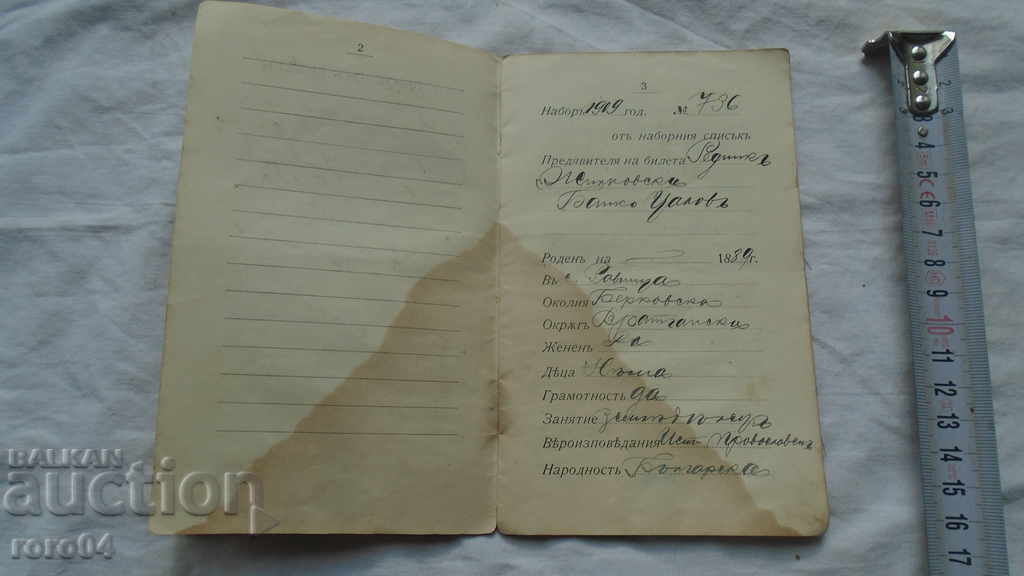 2
3
Наборъ 1919 год. № 736
отъ наборния списъкъ
Предявителя на билета Редникъ
Банко Цаловъ
Роденъ на 1889 г.
Въ с.
Околия Берковска
Окрѫгъ Вратчански
Жененъ да
Дѣца Няма
Грамотность да
Занятие земледѣлецъ
Вѣроизповѣдания Ист. православенъ
Народность Българска
BALKAN
auction
roro04
2
3
3
4
5
6
7
8
9
10
11
12
13
14
15
16
17